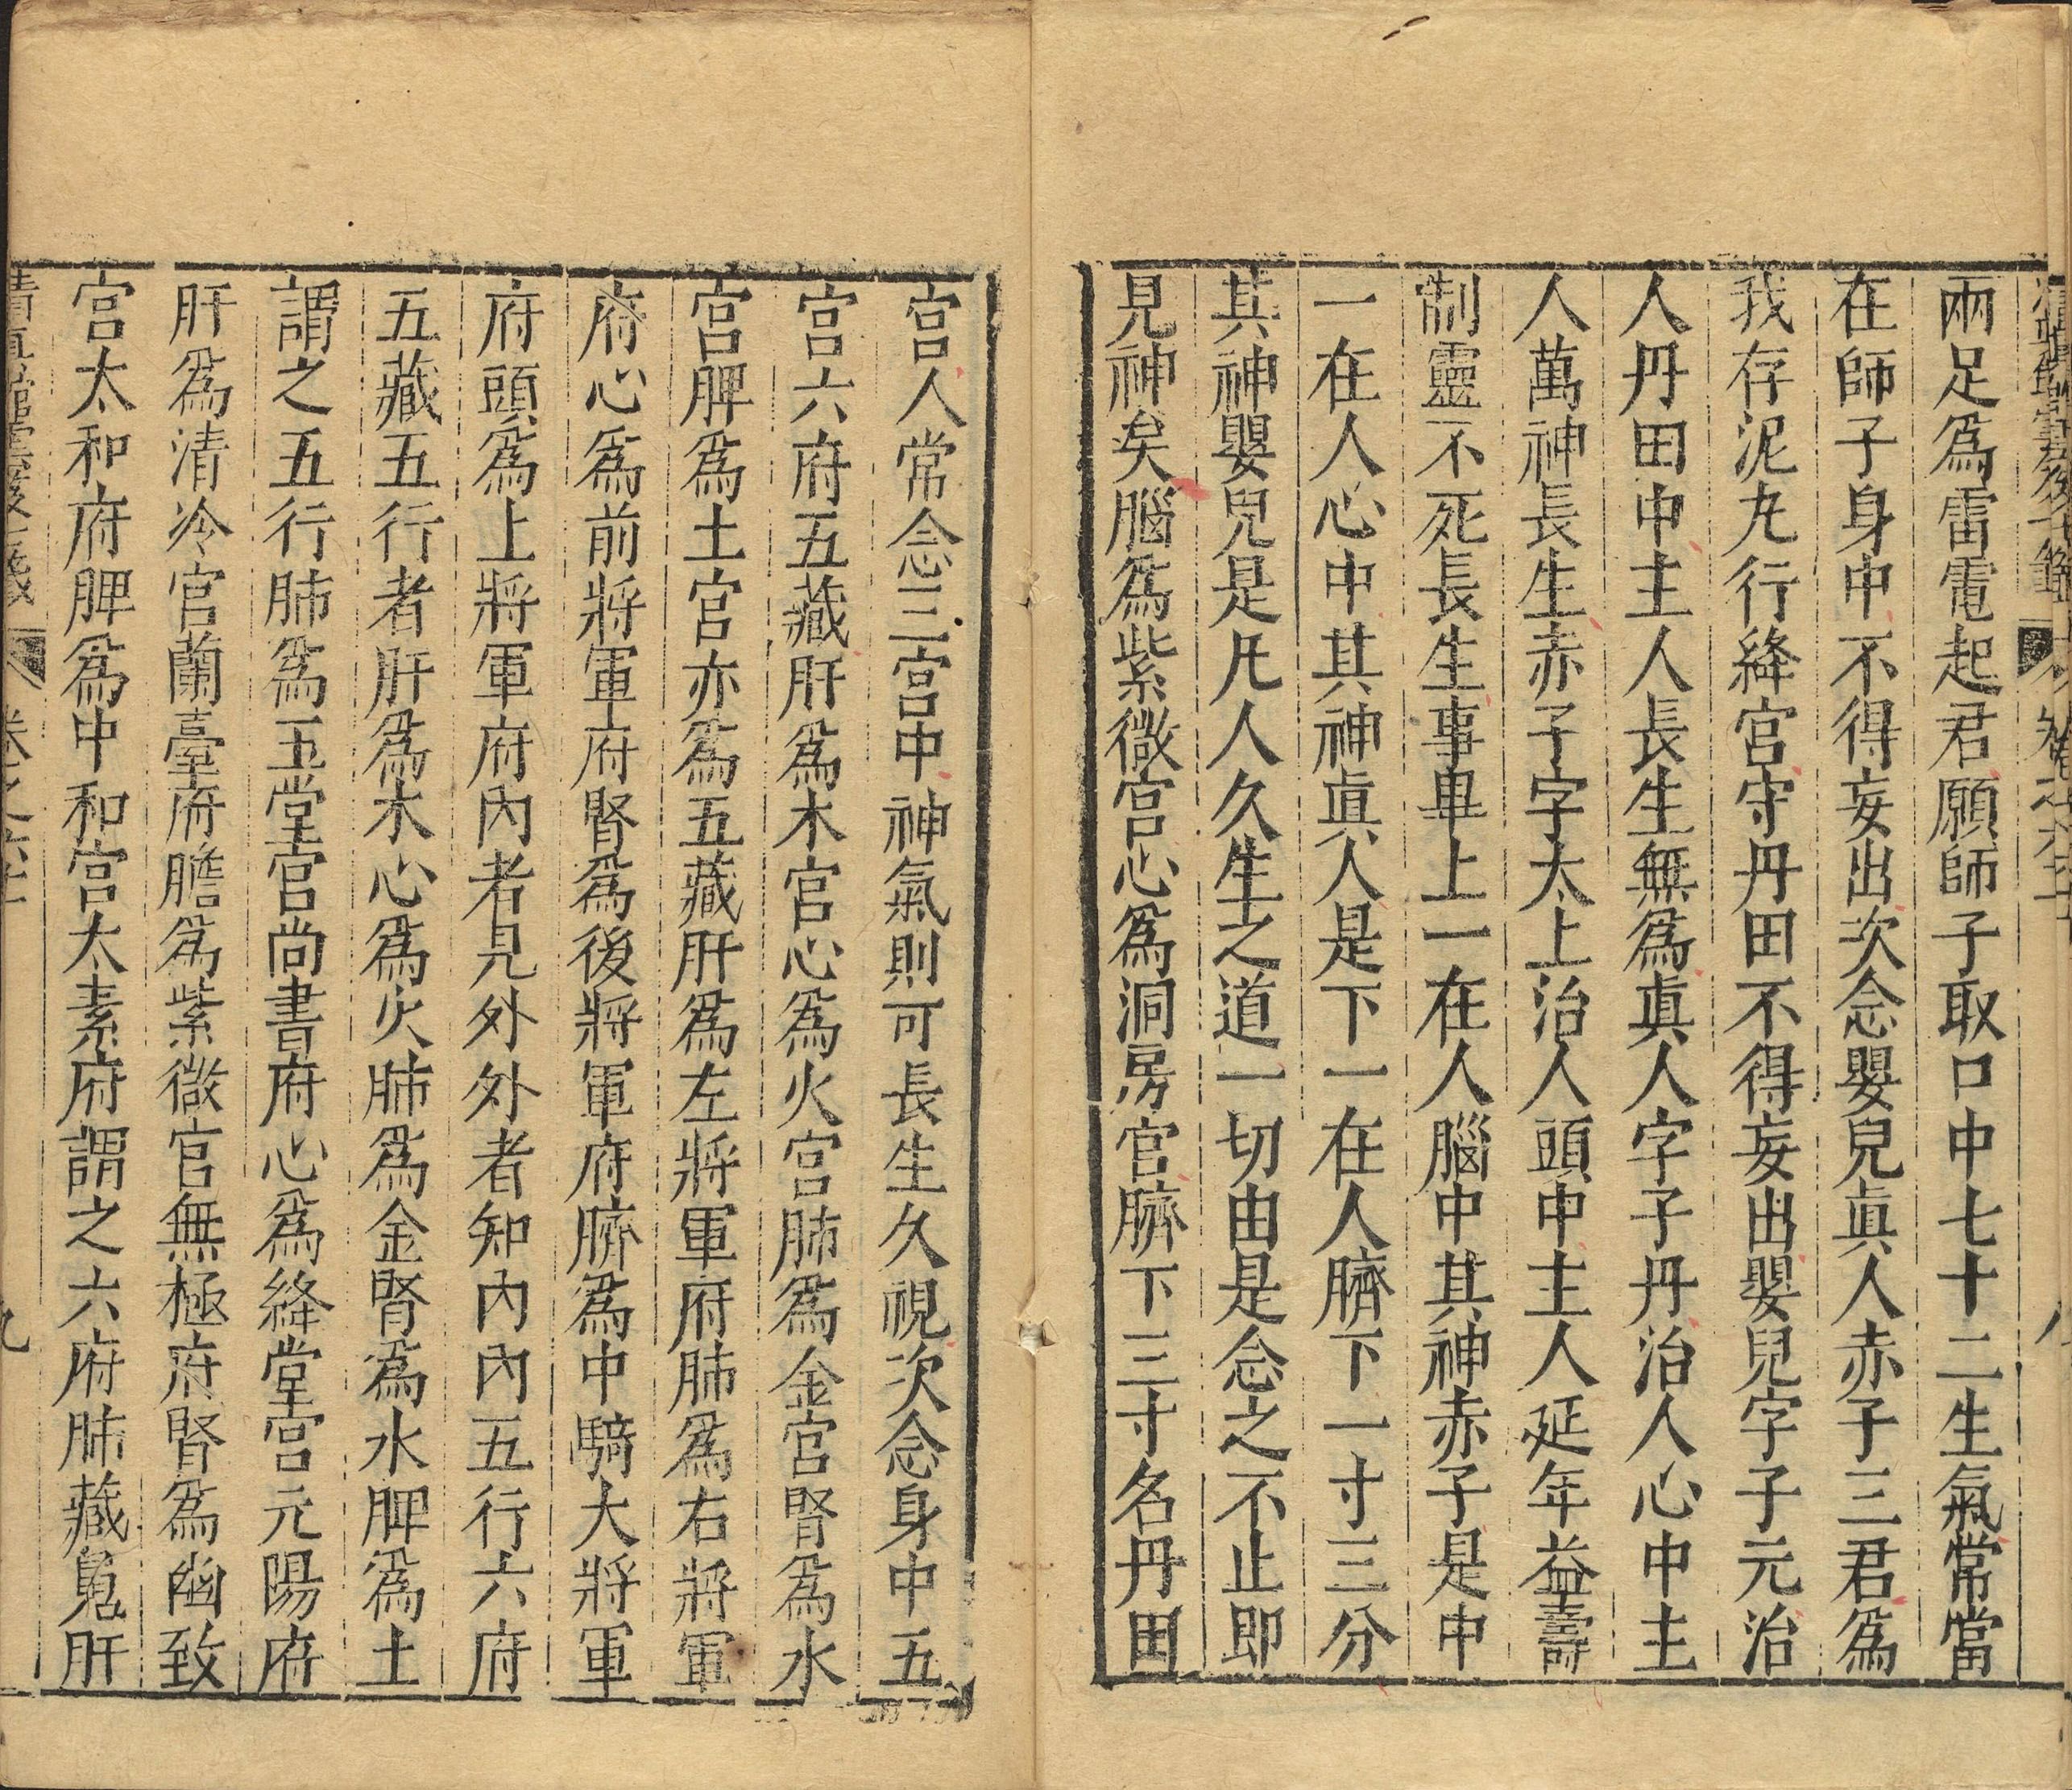 兩足爲雷電起君願師子取口中七十二生氣常當
在師子身中不得妄出次念嬰兒眞人赤子三君爲
我存泥丸行絳宮守丹田不得妄出嬰兒字子元治
人丹田中主人長生無爲眞人字子丹治人心中主
人萬神長生赤子字太上治人頭中主人延年益壽
制靈不死長生事畢上一在人腦中其神赤子是中
一在人心中其神眞人是下一在人臍下一寸三分
其神嬰兒是凡人久生之道一切由是念之不止即
見神矣腦爲紫微宮心爲洞房宮臍下三寸名丹田
宮人常念三宮中神氣則可長生久視次念身中五
宮六府五藏肝爲木宮心爲火宮肺爲金宮腎爲水
宮脾爲土宮亦爲五藏肝爲左將軍府肺爲右將軍
府心爲前將軍府腎爲後將軍府臍爲中騎大將軍
府頭爲上將軍府內者見外外者知內內五行六府
五藏五行者肝爲木心爲火肺爲金腎爲水脾爲土
謂之五行肺爲玉堂宮尚書府心爲絳堂宮元陽府
肝爲清冷宮蘭臺府膽爲紫微宮無極府腎爲幽致
宮太和府脾爲中和宮太素府謂之六府肺藏魄肝
清眞館雲笈七籤 卷之 九